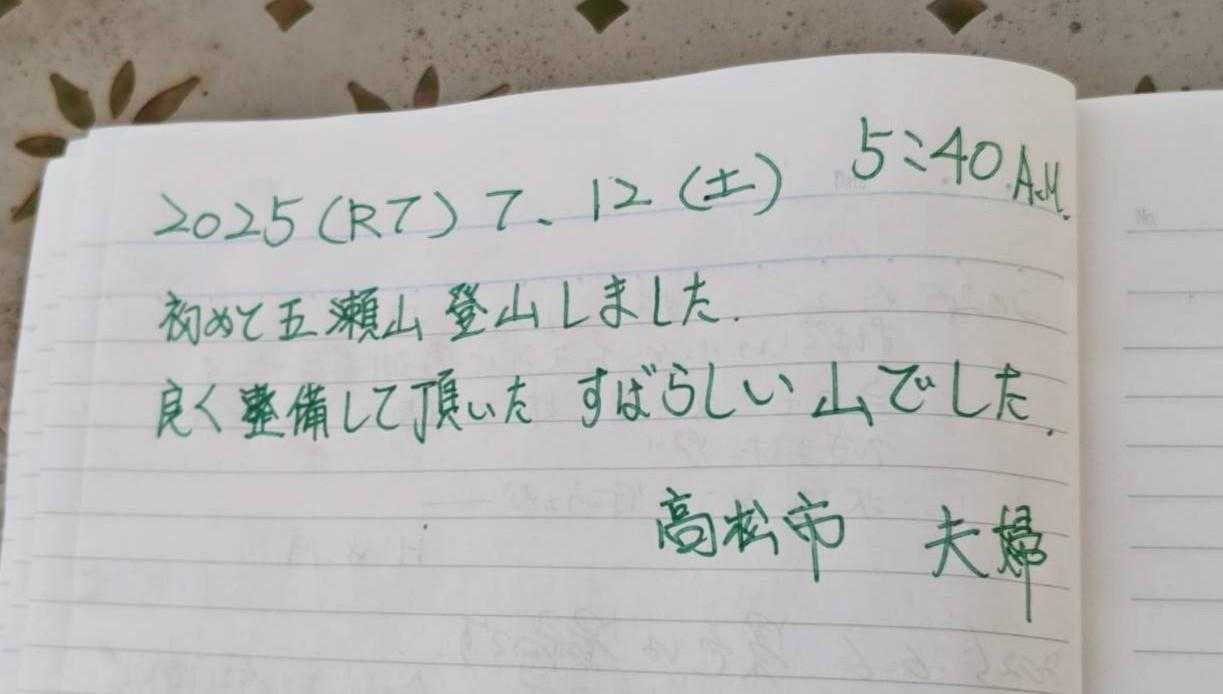 2025(R7) 7、12(土) 5:40 A.M.
初めて五瀬山登山しました.
良く整備して頂いた すばらしい山でした.
高松市 夫婦